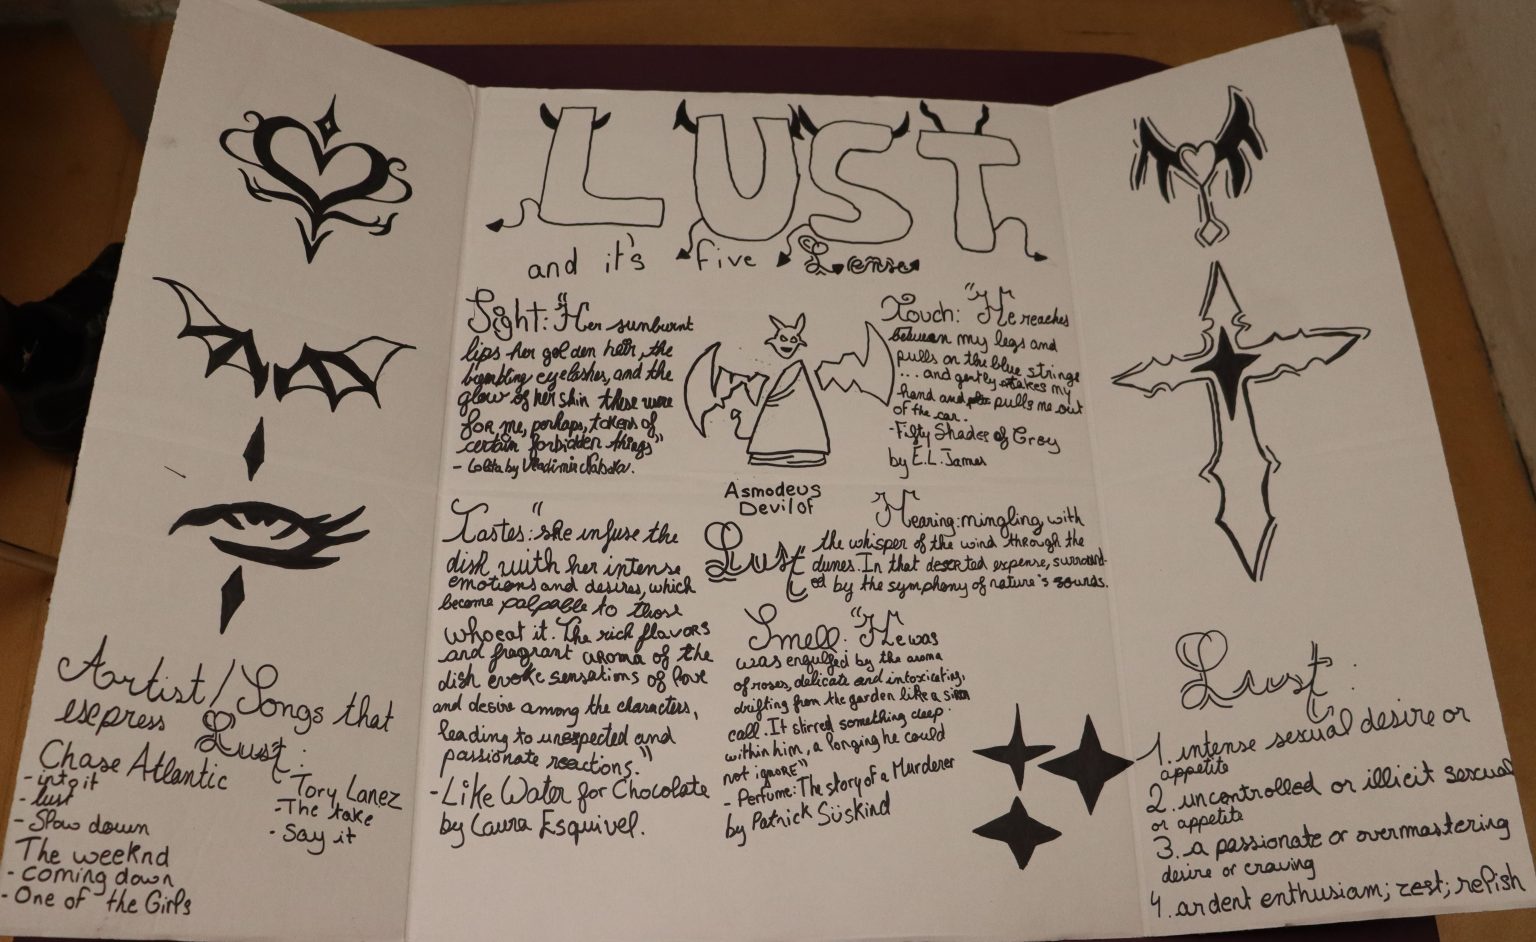 LUST
and it's five Lense
Sight: "Her sunburnt
lips her golden hair, the
eyelashes, and the
glow of her skin these were
for me, perhaps, tokens of
certain forbidden things"
- Lolita by Vladimir
Touch: "He reaches
between my legs and
pulls on the blue strings
... and gently takes my
hand and pulls me out
of the car.
- Fifty Shades of Grey
by E.L. James
Asmodeus
Devil of
Lust
Tastes: "she infuse the
dish with her intense
emotions and desires, which
become palpable to those
who eat it. The rich flavors
and fragrant aroma of the
dish evoke sensations of love
and desire among the characters,
leading to unexpected and
passionate reactions."
- Like Water for Chocolate
by Laura Esquivel.
Hearing: mingling with
the whisper of the wind through the
dunes. In that deserted expense, surround-
ed by the symphony of nature's sounds.
Smell: "He was
was engulfed by the aroma
of roses, delicate and intoxicating,
drifting from the garden like a siren
call. It stirred something deep
within him, a longing he could
not ignore"
- Perfume: The story of a Murderer
by Patrick Süskind
Artist/Songs that
express Lust:
Chase Atlantic
- into it
- lust
- Slow down
The weeknd
- coming down
- One of the Girls
Tory Lanez
- The take
- Say it
Lust:
1. intense sexual desire or
appetite
2. uncontrolled or illicit sexual
or appetite
3. a passionate or overmastering
desire or craving
4. ardent enthusiam; zest; relish